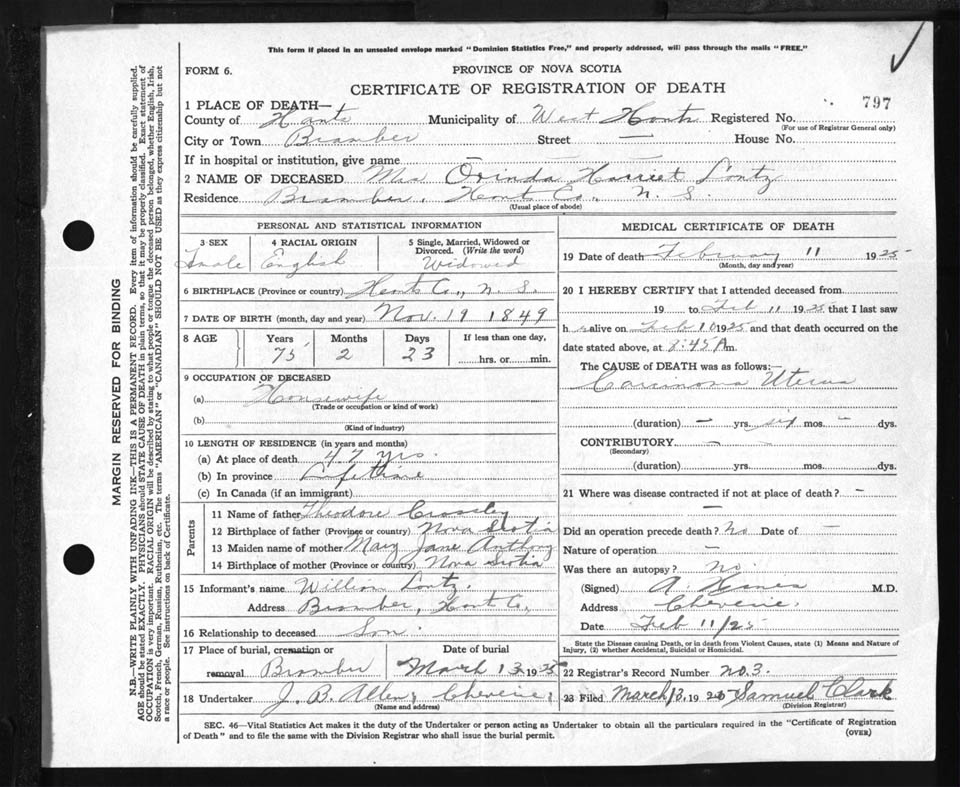 This form if placed in an unsealed envelope marked "Dominion Statistics Free," and properly addressed, will pass through the mails "FREE."
FORM 6.
PROVINCE OF NOVA SCOTIA
CERTIFICATE OF REGISTRATION OF DEATH
797
1 PLACE OF DEATH—
County of Hants Municipality of West Hants Registered No.
(For use of Registrar General only)
City or Town Bramber Street — House No.
If in hospital or institution, give name —
2 NAME OF DECEASED Mrs Orinda Harriet Lontz
Residence Bramber, Hants Co., N. S.
(Usual place of abode)
PERSONAL AND STATISTICAL INFORMATION
3 SEX 4 RACIAL ORIGIN 5 Single, Married, Widowed or Divorced. (Write the word)
English Widowed
6 BIRTHPLACE (Province or country) Hants Co., N. S.
7 DATE OF BIRTH (month, day and year) Nov. 19 1849
8 AGE Years Months Days If less than one day,
75 2 23 hrs. or min.
9 OCCUPATION OF DECEASED
(a) Housewife
(Trade or occupation or kind of work)
(b)
(Kind of industry)
10 LENGTH OF RESIDENCE (in years and months)
(a) At place of death 47 yrs.
(b) In province Lifetime
(c) In Canada (if an immigrant)
Parents
11 Name of father Theodore Crossley
12 Birthplace of father (Province or country) Nova Scotia
13 Maiden name of mother Mary Jane Anthony
14 Birthplace of mother (Province or country) Nova Scotia
15 Informant's name William Lontz
Address Bramber, Hants Co.,
16 Relationship to deceased Son.
17 Place of burial, cremation or removal Date of burial
Bramber March 13 1925
18 Undertaker J. B. Allen, Cheverie,
(Name and address)
MEDICAL CERTIFICATE OF DEATH
19 Date of death February 11 1925
(Month, day and year)
20 I HEREBY CERTIFY that I attended deceased from
19 to Feb 11 1925 that I last saw
h r alive on Feb 10 1925 and that death occurred on the
date stated above, at 8:45 A m.
The CAUSE of DEATH was as follows:—
Carcinoma Uterus
(duration) — yrs. six mos. — dys.
CONTRIBUTORY —
(Secondary)
(duration) yrs. mos. dys.
21 Where was disease contracted if not at place of death? —
—
Did an operation precede death? No Date of —
Nature of operation —
Was there an autopsy? No
(Signed) A. M.D.
Address Cheverie,
Date Feb 11/25
State the Disease causing Death, or in death from Violent Causes, state (1) Means and Nature of
Injury, (2) whether Accidental, Suicidal or Homicidal.
22 Registrar's Record Number No 3.
23 Filed March 13. 1925 Samuel Clark
(Division Registrar)
SEC. 46—Vital Statistics Act makes it the duty of the Undertaker or person acting as Undertaker to obtain all the particulars required in the "Certificate of Registration
of Death" and to file the same with the Division Registrar who shall issue the burial permit.
(OVER)
MARGIN RESERVED FOR BINDING
N.B.—WRITE PLAINLY WITH UNFADING INK—THIS IS A PERMANENT RECORD. Every item of information should be carefully supplied.
AGE should be stated EXACTLY. PHYSICIANS should STATE CAUSE OF DEATH in plain terms, so that it may be properly classified. Exact statement of
OCCUPATION is very important. RACIAL ORIGIN will be described by stating to what people or tongue the deceased person belonged, whether English, Irish,
Scotch, French, German, Russian, Ruthenian, etc. The terms "AMERICAN" or "CANADIAN" SHOULD NOT BE USED as they express citizenship but not
a race or people. See instructions on back of Certificate.